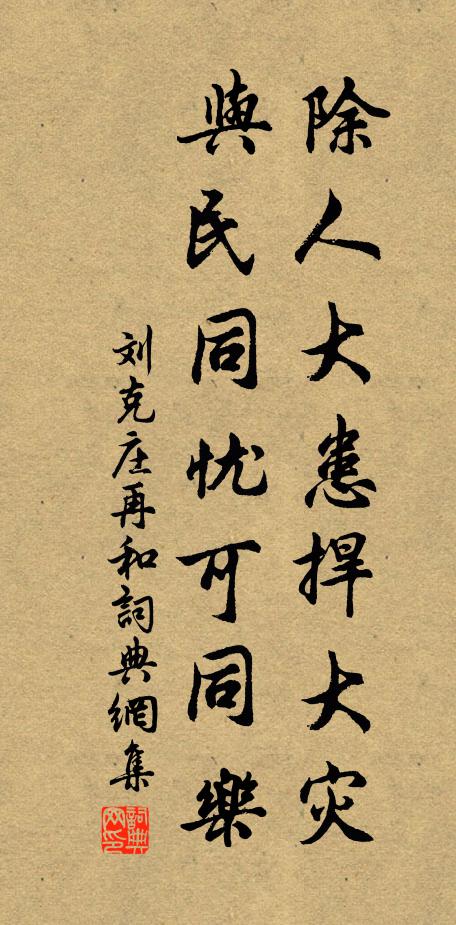 除人大患捍大灾
與民同忧可同樂
刘克庄再和詞典網集
詞典网印